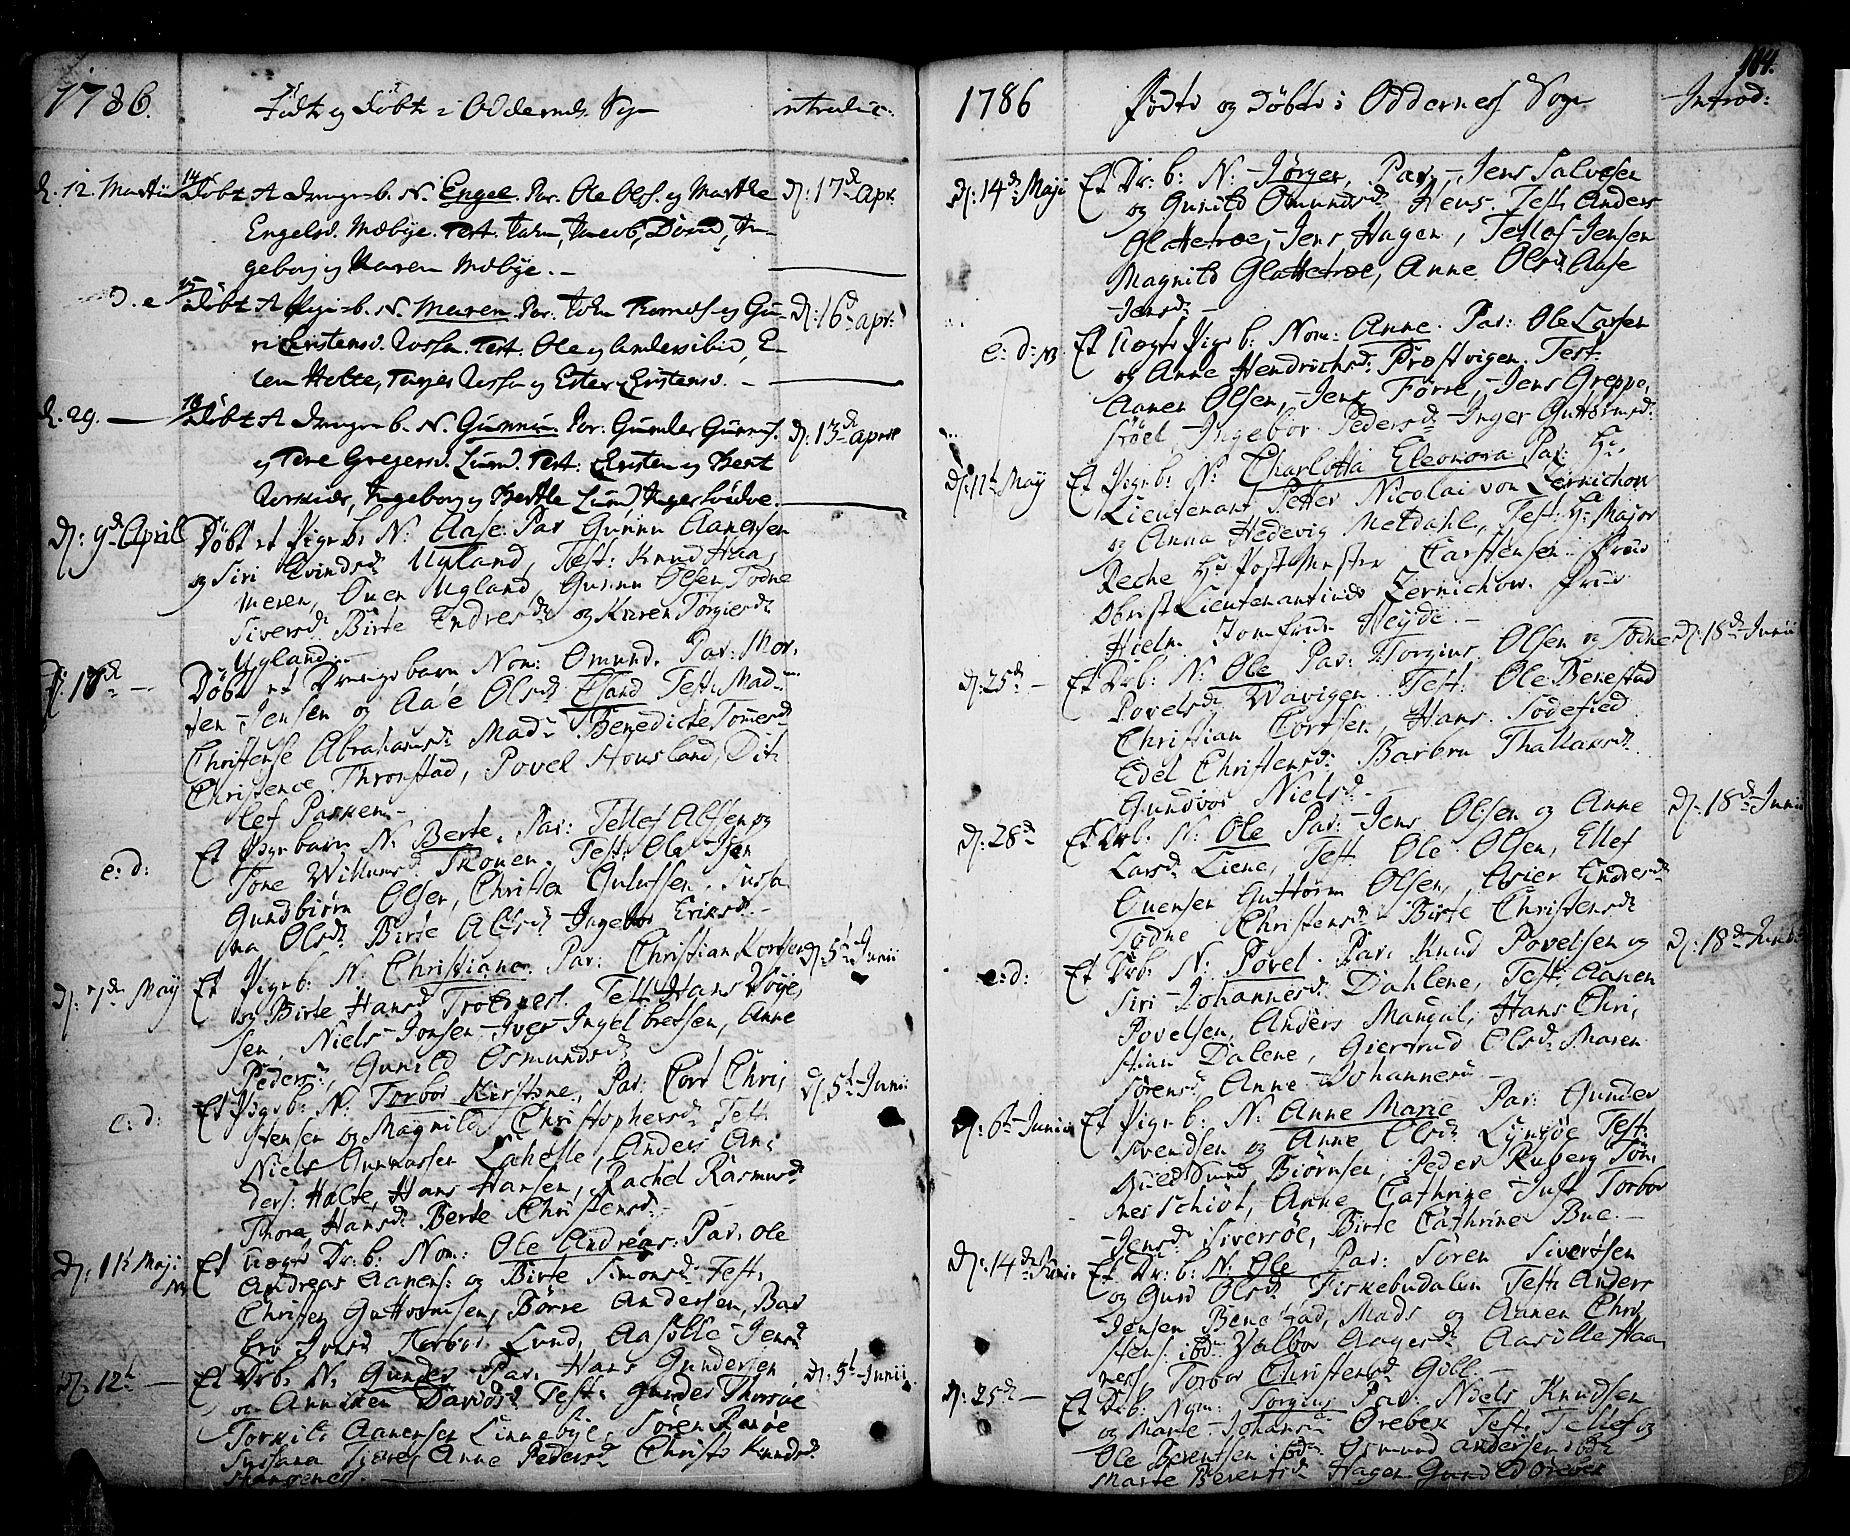 1786.
Fødte og Døbte i Oddernes Sogn
introduc:
d. 12. Martii
14
Døbt et Drengeb. N. Engel. Par. Ole Ols. og Marthe
Engelsd. Mæbye. Test.
geborg og Maren Mæbye. -
d: 17de Apr.
15
Døbt et Pigeb. N. Maren. Par. og Gu-
ri Christensd. Test. Ole og Anders ibid, E-
len Holte, og Ester Christensd. -
d: 16de apr:
d. 29. -
Døbt et Drengeb. N. Gunnu. Par. Gunder Gunnus.
og Tore Gregersd. Lund. Test: Christen og Bent
Ingeborg og Berthe Lund, Inger
d: 13de april
d: 9de April
Døbt et Pigeb: N: Aase. Par Gunnu Aanensen
og Siri Evindsd: Ugland, Test: Knud Haa,
meren, Ouen Ugland, Gunnu Olsen, Todne
Siversd: Birte Endresd: og Karen Torgiersd:
Ugland. -
d: 17de -
Døbt et Drengebarn Nom: Omund. Par: Mor,
ten Jensen og Aase Olsd: Test: Mad:
Christense Abrahamsd: Mad: Benedicte Tomesd:
Christence Thronstad, Povel Housland, Dit:
lef
e: d:
Et Pigebarn N: Berte. Par: Tellef Alfsen og
Tone Willumsd: Skouen. Test: Ole Isen
Gundbiørn Olsen, Christen Gulufsen, Susa
na Olsd: Birte Alfsd: Ingebor Eriksd: -
d: 7de May
Et Pigeb: N: Christiane. Par: Christian Kortsen
og Birte Hansd: Test: Hans Voye,
sen, Niels Jonsen Iver Ingelbretsen, Anne
Pedersd:, Gunild Osmundsd:
d: 5t Junii
e: d:
Et Pigeb: N: Torbor Kirstine, Par: Cort Chri,
stensen og Magnild Christophersd: Test:
Niels Gunnarsen Lahelle, Anders An,
ders: Holte, Hans Hansen, Rachel Rasmusd:
Thora Hansd: Berte Christensd: -
d: 5t Junii
d: 11t Maji
Et uægte Dr: b: Nom: Ole Andreas: Par: Ole
Andreas Aanens: og Birte Simonsd: Test:
Christen Guttormsen, Børre Andersen, Bar
bro Torbor Lund, Aasille Jensd:
d: 12t -
Et Drb: N: Gunder Par: Hans Gundersen
og Anniken Davidsd: Test: Gunder Thorsøe
Torkild Aanensen Linnebye, Søren
Susana Anne Pedersd: Christi Knudsd:
d: 5t Junii
1786
Fødte og Døbte i Oddernes Sogn
Introd:
104.
d: 14de Maji
Et Dr: b: N: Jørgen, Par: Jens Salvesen
og Gunild Omundsd: Test: Anders
Glattetroe, Jens Hagen, Tellef Jensen
Magnild Glattetroe, Anne Olsd: Aase
Jensd: -
e: d:
Et uægte Pigeb: Nom: Anne. Par: Ole Larsen
og Anne Hendrichsd: Præstvigen. Test:
Aanen Olsen, Jens Jens Greppe,
Ingebor Pedersd: Inger Guttormsd:
d: 17t May
Et Pigeb: N: Charlotta Eleonora Par: Hr
Lieutenant Petter Nicolai von Zernichow
og Anna Hedevig Neldahl, Test: Hr Major
Reche Hr PostMester Carstensen. Frue
Obrist Lieutenantinde Zernichow. Frue
Hielm. Jomfrue Weyde. -
d: 25de -
Et Drb: N: Ole Par: Torgius Olsen og Todne
Povelsd: Wavigen. Test: Ole Benestad
Christian Cortsen, Hans
Edel Christensd: Barbro Thallaksd:
Gundvor Nielsd:
d: 18de Junii
d: 28de
Et Drb: N: Ole Par: Jens Olsen og Anne
Larsd: Liene, Test: Ole Olsen, Ellef
Ouensen Guttorm Olsen, Asier Endresd:
Todne Christensd: Birte Christensd:
d: 18de Junii
e: d:
Et Drb: N: Povel. Par: Knud Povelsen og
Siri Johannesd: Dahlene, Test: Aanen
Povelsen, Anders Hans Chri,
stian Dalene, Giertrud Olsd: Maren
Sørensd: Anne Johannesd: -
d: 18de Junii
d: 6t Junii
Et Pigeb: N: Anne Marie Par: Gunder
Svendsen og Anne Olsd: Test:
Biørnsen, Peder Tom,
mes Schiøt, Anne Cathrine Just Torbor
Jensd: Siversøe, Birte Cathrine Bue. -
d: 14de Junii
Et Dr: b: N: Ole Par: Søren Siversen
og Guro Olsd: Fiskebudalen Test: Anders
Jensen Benestad, Mads og Aanen Chri,
stens: ibd: Valbor Aagesd: Aasille Haa
nes. Torbor Christensd: Gill -
d: 25de -
Et Drb: Nom: Torgius Par: Niels Knudsen
og Marte Johansd: Ørebek Test: Tellef og
Ole Berentsen ibd: Osmund Andersen ibd:
Marte Berentsd: Hagen Gunild Orebek